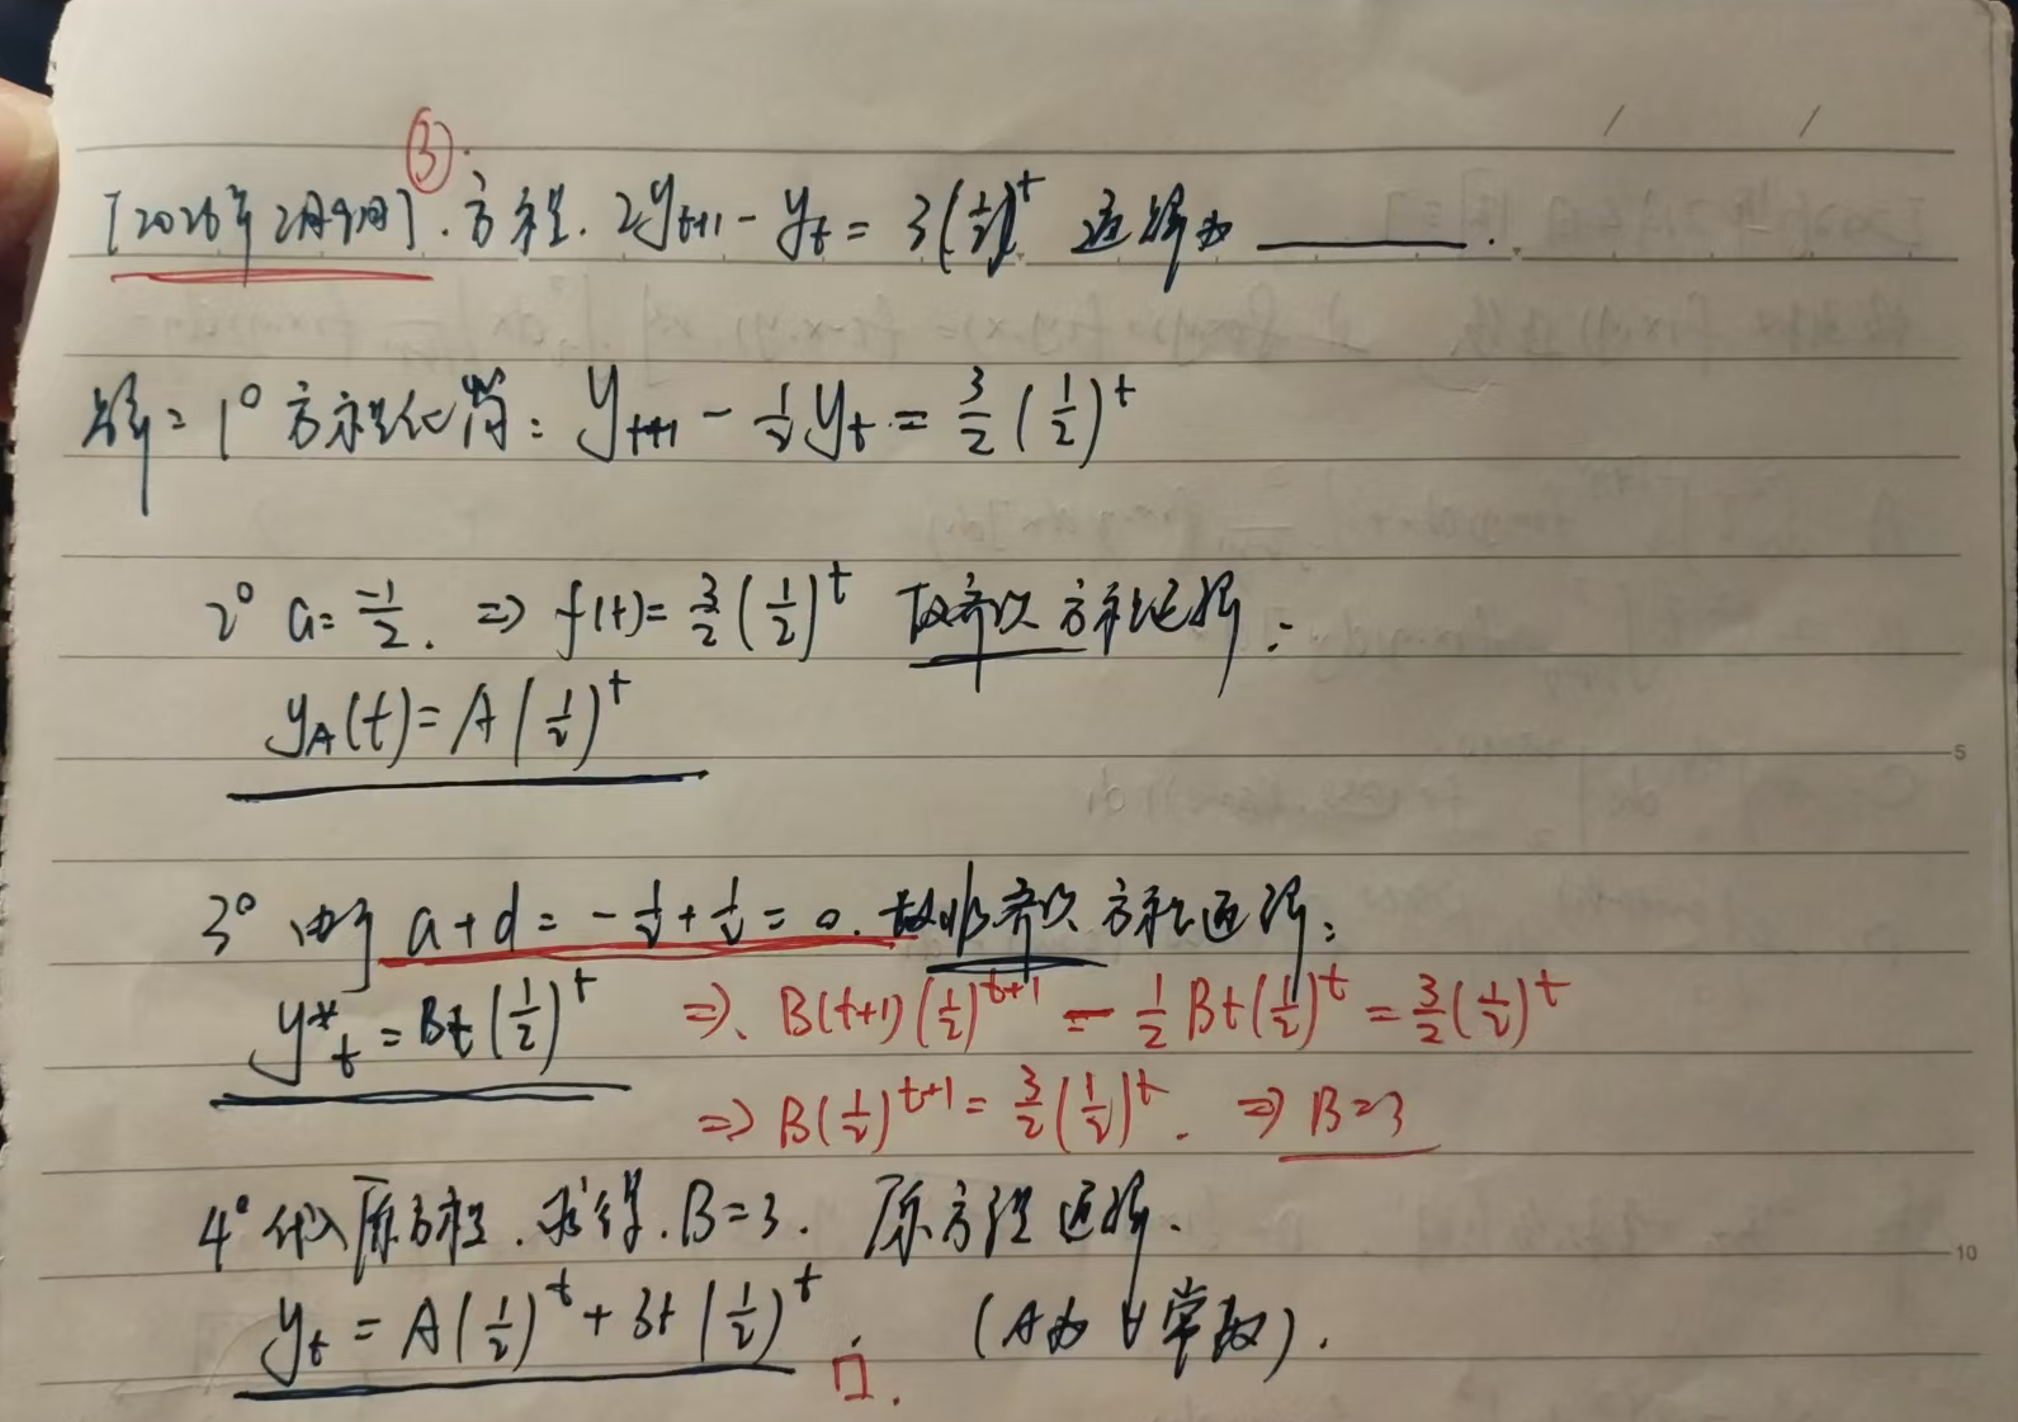 ③.
[2026年2月9日]. 方程. 2y_{t+1} - y_t = 3(1/2)^t 通解为 ______.
解: 1° 方程化简: y_{t+1} - 1/2 y_t = 3/2 (1/2)^t
2° a = -1/2. ⇒ f(t) = 3/2 (1/2)^t 故齐次方程通解:
y_A(t) = A (1/2)^t
5
3° 由于 a + d = -1/2 + 1/2 = 0. 故非齐次方程通解:
y*_t = Bt (1/2)^t ⇒ B(t+1)(1/2)^{t+1} - 1/2 Bt(1/2)^t = 3/2 (1/2)^t
⇒ B(1/2)^{t+1} = 3/2 (1/2)^t. ⇒ B=3
4° 代入原方程. 求得. B=3. 原方程通解.
10
y_t = A(1/2)^t + 3t(1/2)^t □. (A为∀常数).